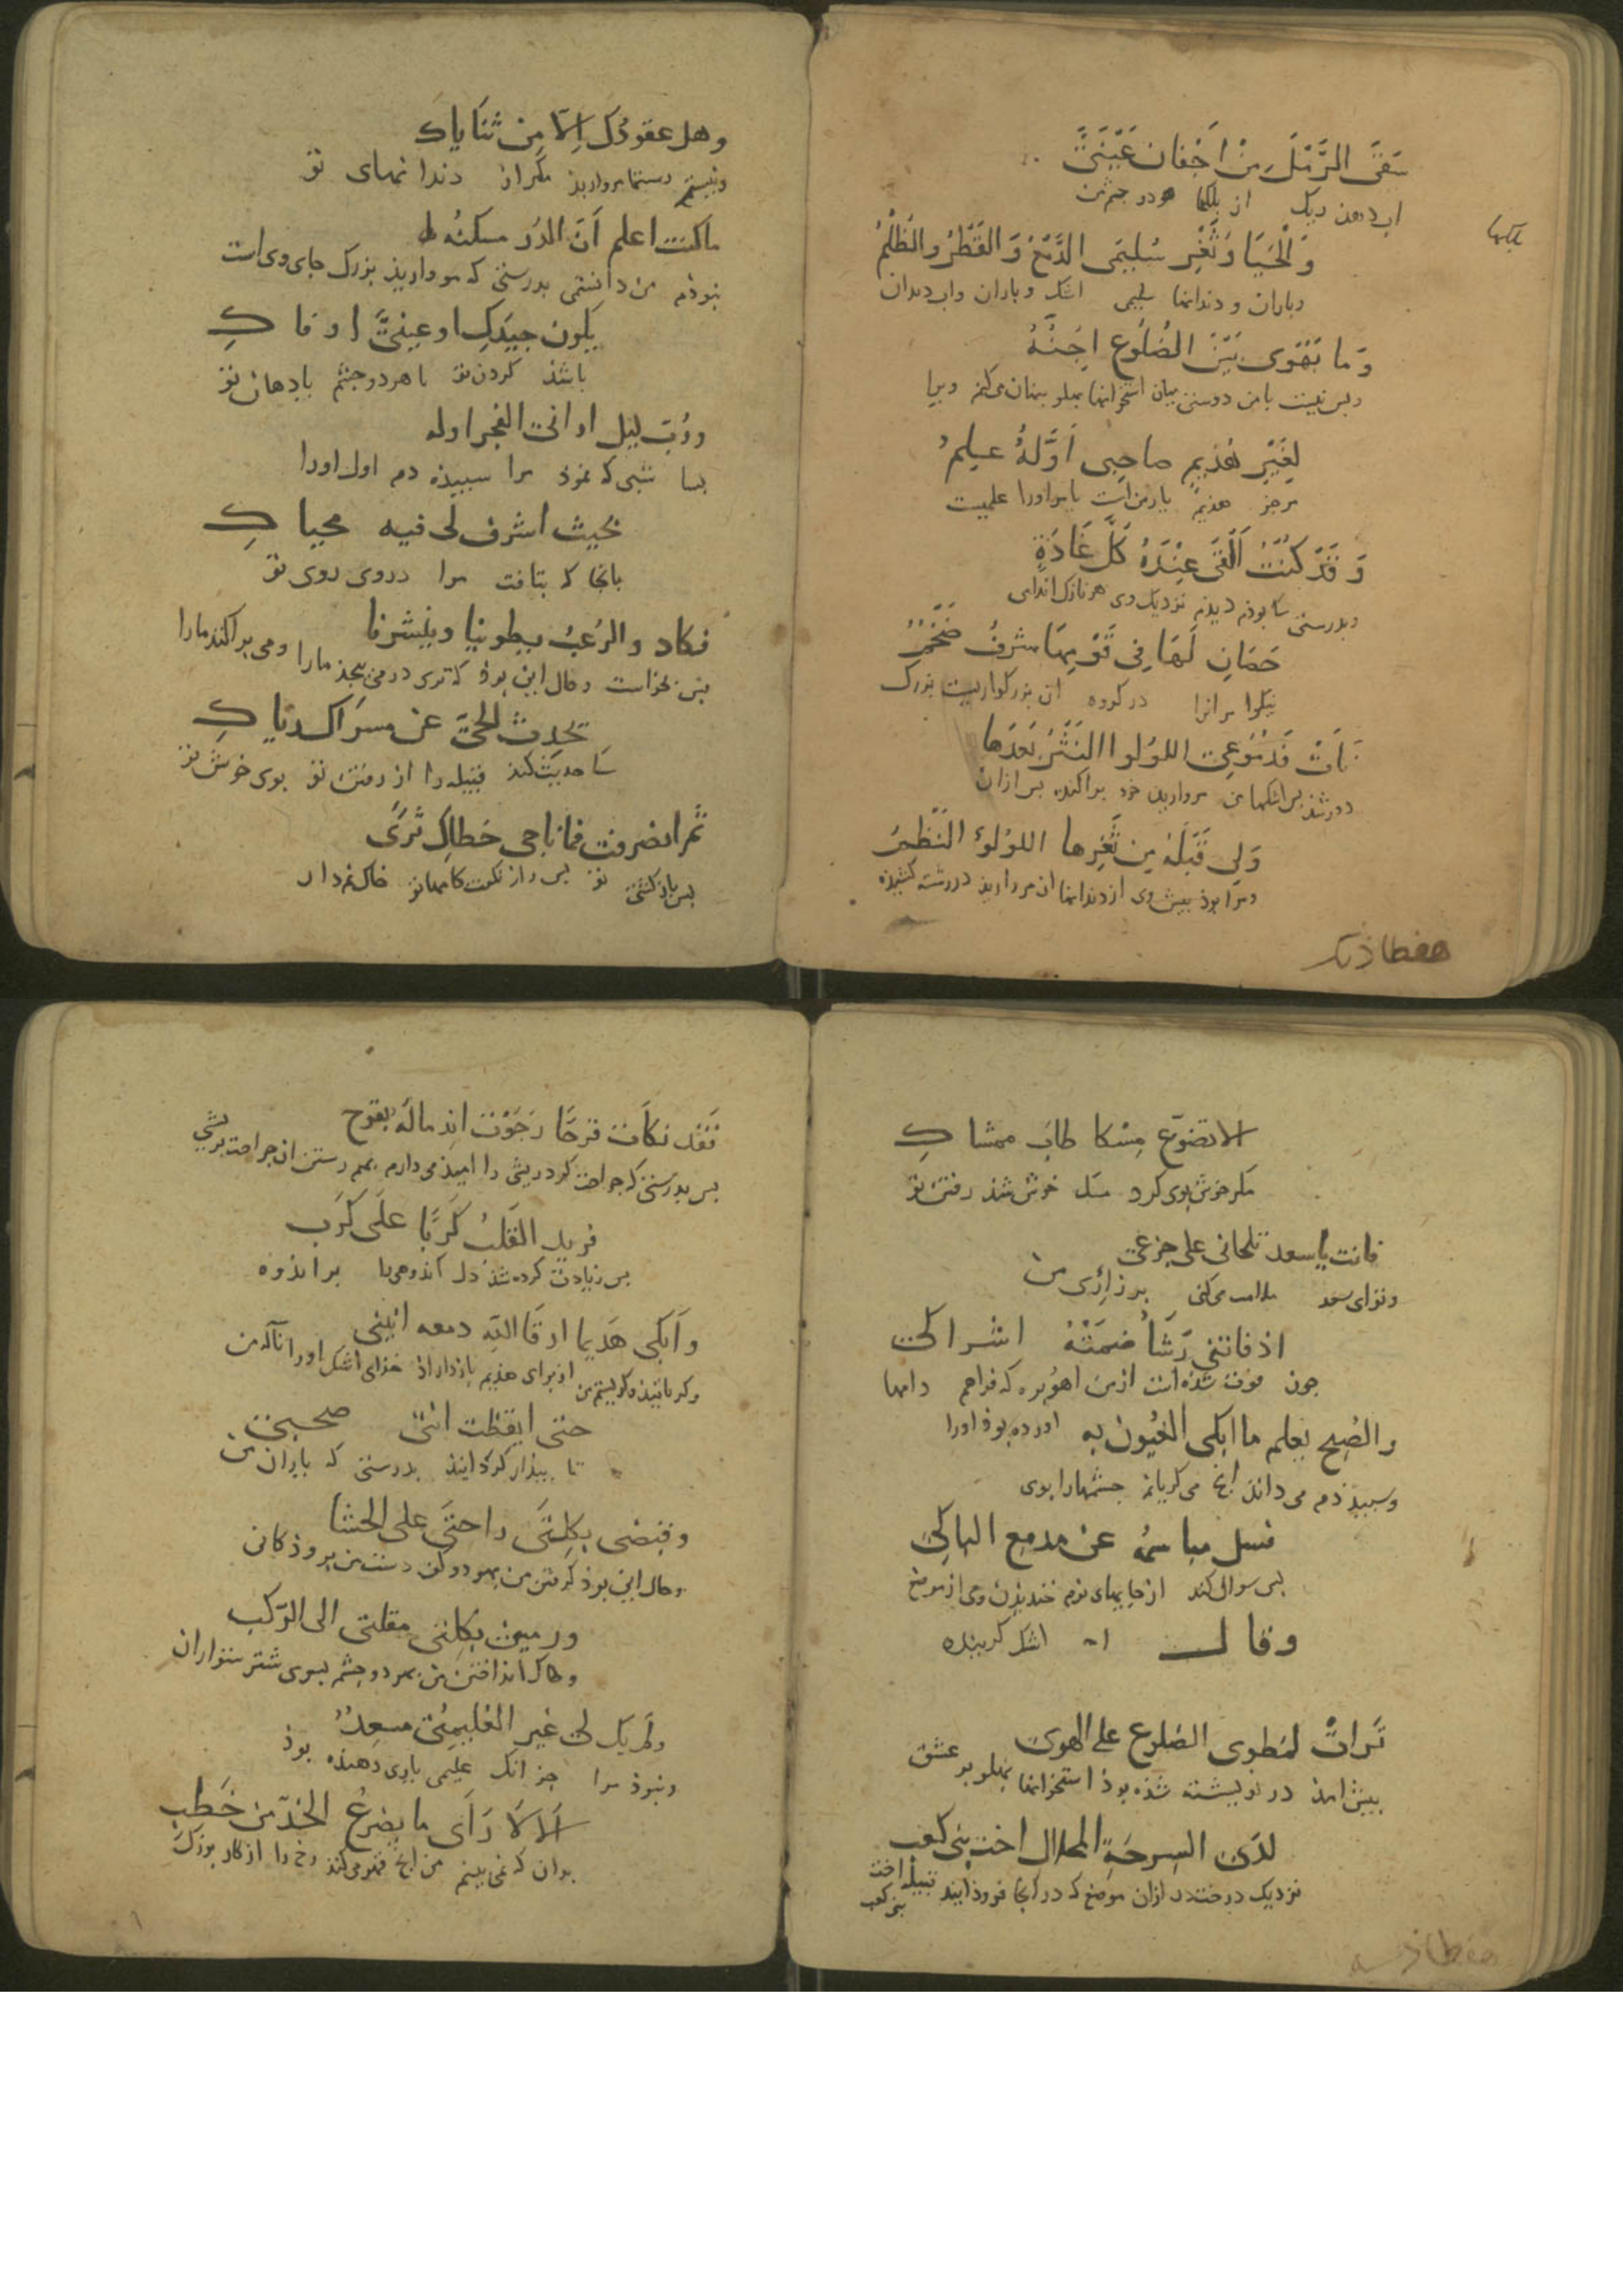 سَقَى الرَّمْلَ مِنْ اَجْفَانِ عَيْنَىَّ
اب دهد ريک از پلکها هر دو چشم من
پلکها
وَالْحَيَا وَثَغْرِ سُلَيْمَى الدَّمْعُ وَالقَطْرُ وَالظَّلْمُ
وباران و دندانها سليمى اشک و باران واب دندان
وَمَا بَهَوى بَيْنَ الضُلُوعِ اجِنُّهُ
وبس نيست با من دوستى ميان استخوانها پهلو پنهان مى کنم ويرا
لِغَيْرِ هُذَيمٍ صاحِبِى اَوَّلَهُ عِلمُ
مرجز هذيم يار من است يا مر اورا علميست
وَقَدْ كُنْتُ اَلْقَى عِنْدَهُ كُلَّ غَادَةٍ
وبدرستى كه بوذم ديذم نزديک وى هر نازک اندامى
حَصَانٍ لَهَا فِى قَوْمِهَا شرفٌ ضَخْمُ
نيکوا مرانرا در کروه ان بزرکواريست بزرک
نَاَتْ فَدُمُوعِى اللؤلؤ النَّثْرُ بَعْدَهَا
دور شذ بس اشکها من مرواريد خرد پراکنده بس ازان
وَلِى قَبْلَهُ مِن ثَغْرِها اللؤلؤ النَّظْمُ
ومرا بوذ بيش وى از دندانها ان مرواريذ در رشته کشيذه
هفطاذيک
وهل عقودُكِ اِلاّ مِن ثنَاياكِ
ونيستم رستها مرواريذ مکر از دندانهاى تو
ماكنت اعلم اَنّ الدُر مسكنُه
نبوذم من دانستمى بدرستى كه مرواريذ بزرک جاى وى است
يكون جيدكِ اوعينىَّ اوفاكِ
باشذ کردن تو يا هر دو چشم يا دهان تو
ورُبّ ليل ارانى الفجر اوله
بسا شبى كه نموذ مرا سپيذه دم اول اورا
بحيث اشرف لى فيه محياكِ
بانجا كه بتافت مرا در وى روى تو
فكاد والرُعبُ يطوينا وينشرنا
بس بخواست وحال اين بوذ كه ترس در مى پيچذ مارا ومى پراکند مارا
تحدِث الحىَّ عن مسراكِ رياكِ
كه حديث کند قبيله را از رفتن تو بوى خوش تو
ثم انصرفت فماناجى خطاكِ ثرىً
بس باز کشتى تو بس راز نکفت کامها تو خاک نم دار
الا تضوّع مِسكا طابَ ممشاكِ
مکر خوش بوى کرد مسک خوش شذ رفتن تو
فانت ياسعد تلحانى على جزعى
وتو اى سعد ملامت مى کنى بر زارى من
اذ فاتنى رَشَأٌ ضمَّتْهُ اشراكى
چون فوت شذه است از من اهو بره كه فراهم دامها
والصُبح يعلم ما ابكى العُيون به اورده بوذ اورا
وسپيذ دم مى داند انچ مى کرياند چشمها را بوى
فسل مباسمُه عن مدمع الباكى
بس سوال کند از جايهاى نرم خنديذن وى از موضع
وقال اشک کرينده
تَراتْ لمَطوى الضلوع على الهوى
بيش امذ در نويشته شذه بوذ استخوانها پهلو بر عشق
لدى السِرحَةِ المحلال اخت بنى كعب
نزديک درخت ازان موضع كه در انجا فروذ ايند قبيله اخت
بنى کعب
فَقد نكأت قرحًا رَجَوْت اندِمالَه بقرح
بس بدرستى كه جراحت کرد ريشى را اميذ مى دارم بهم رستن ان جراحت بريشى
فزيد القَلبُ كَربًا عَلى كَرب
بس زيادت کرده شذ دل اندوهى را بر اندوه
وَاَبكى هَذيما ارقَا الله دمعه انينى
وکريانيذ کريستم من از براى هذيم باز داراذ خذاى اشک اورا ناله من
حتى ايقظت انتى صحبى
تا بيذار کردانيذ بدرستى كه ياران من
وقبضى بكلتى راحتى على الحشا
وحال اين بوذ کرفتن من بهر دو کف دست من بر وذکانى
ورميت بكلتى مقلتى الى الرّكب
وحال انداختن من بهر دو چشم بسوى شتر سواران
ولم يك لى غير العُليمىّ مسعدٌ
ونبوذ مرا جز انک عليمى يارى دهنده بوذ
اَلاَ لاَ رَأى ما يضرعُ الخدّ من خَطبِ
بدان كه نمى بينم من انچ قهر مى کند رخ را از کار بزرک